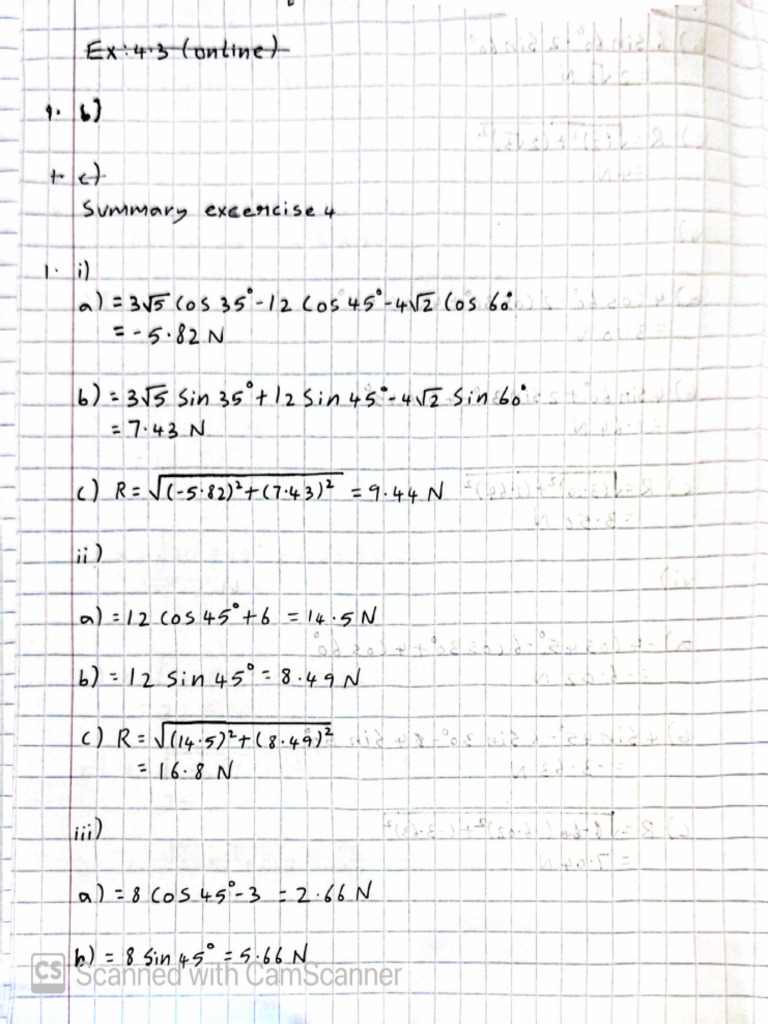 Ex: 4.3 (online)
1. b)
1 c)
Summary excercise 4
1. i)
a) = 3√5 Cos 35° - 12 Cos 45° - 4√2 Cos 60°
= -5.82 N
b) = 3√5 Sin 35° + 12 Sin 45° - 4√2 Sin 60°
= 7.43 N
c) R = √(-5.82)² + (7.43)² = 9.44 N
ii)
a) = 12 cos 45° + 6 = 14.5 N
b) = 12 Sin 45° = 8.49 N
c) R = √(14.5)² + (8.49)²
= 16.8 N
iii)
a) = 8 Cos 45° - 3 = 2.66 N
b) = 8 Sin 45° = 5.66 N
CS Scanned with CamScanner